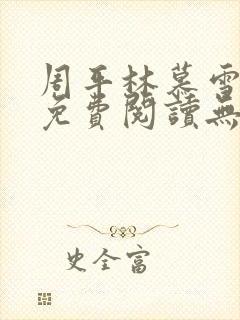 周平林慕雪
免費閱讀無
史全富